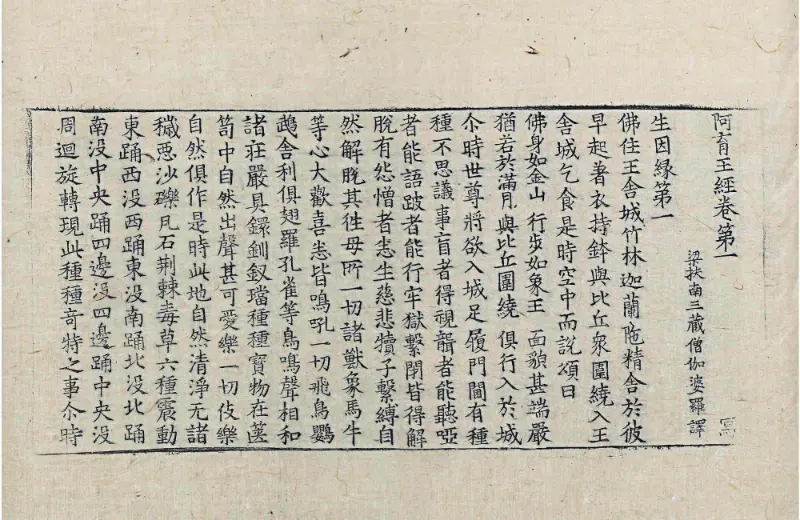 阿育王經卷第一
梁扶南三藏僧伽婆羅譯
寫
生因緣第一
佛住王舍城竹林迦蘭陁精舍於彼
早起著衣持鉢與比丘衆圍繞入王
舍城乞食是時空中而說頌曰
佛身如金山 行步如象王 面貌甚端嚴
猶若於滿月 與比丘圍繞 俱行入於城
尒時世尊將欲入城足履門閫有種
種不思議事盲者得視聾者能聽啞
者能語跛者能行牢獄繫閉皆得解
脫有怨憎者悉生慈悲犢子繫縛自
然解脫其徃母所一切諸獸象馬牛
等心大歡喜悉皆鳴吼一切飛鳥鸚
鵡舍利俱翅羅孔雀等鳥鳴聲相和
諸莊嚴具鐶釧釵璫種種寶物在篋
笥中自然出聲甚可愛樂一切伎樂
自然俱作是時此地自然清淨无諸
穢惡沙礫瓦石荆棘毒草六種震動
東踊西没西踊東没南踊北没北踊
南没中央踊四邊没四邊踊中央没
周迴旋轉現此種種奇特之事尒時